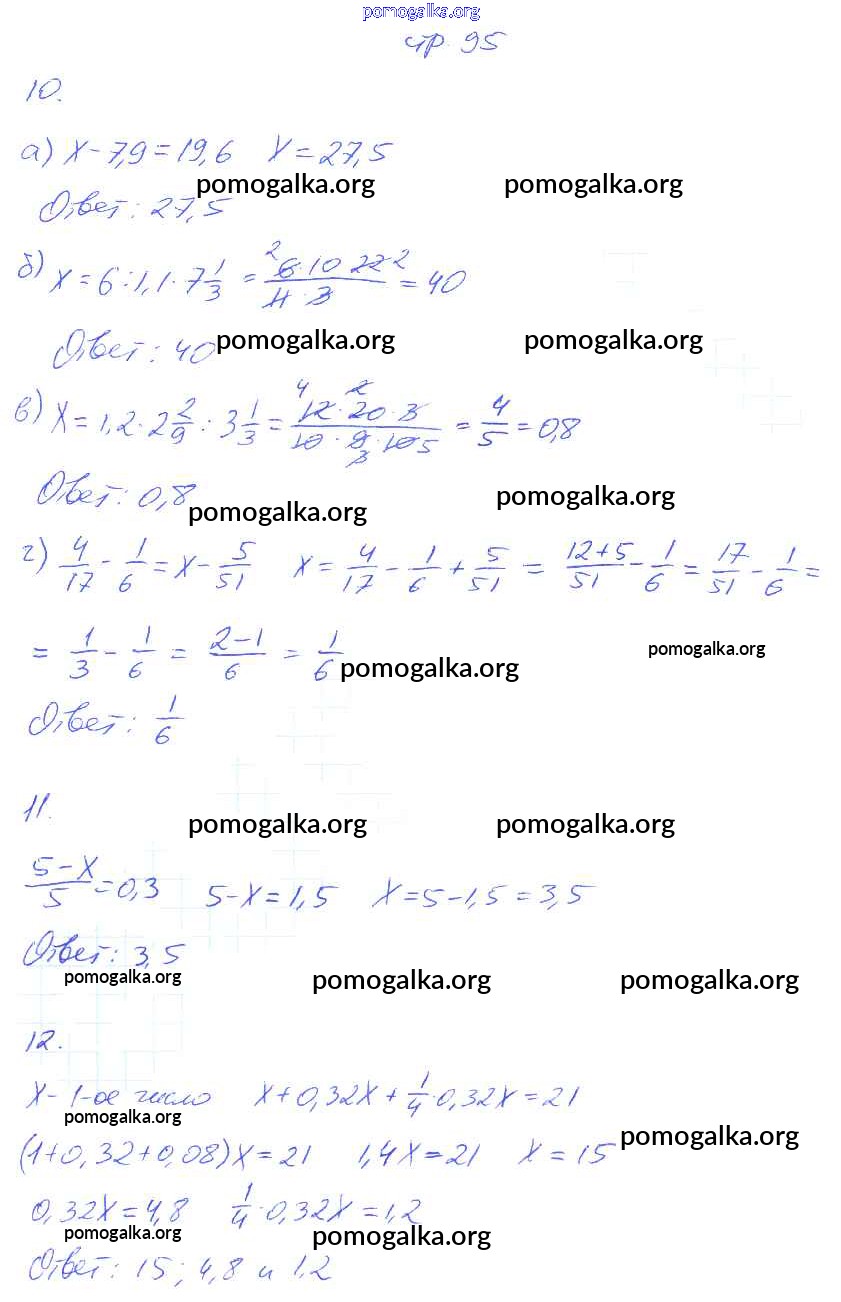 pomogalka.org
стр. 95
10.
а) x - 7,9 = 19,6 x = 27,5
pomogalka.org pomogalka.org
Ответ: 27,5
б) x = 6 : 1,1 · 7 1/3 = 6 · 10 · 22 / 11 · 3 = 40
2 2
Ответ: 40
pomogalka.org pomogalka.org
в) x = 1,2 · 2 2/9 : 3 1/3 = 12 · 20 · 3 / 10 · 9 · 10 = 4/5 = 0,8
4 2 3 5
Ответ: 0,8
pomogalka.org pomogalka.org
г) 4/17 - 1/6 = x - 5/51 x = 4/17 - 1/6 + 5/51 = 12+5/51 - 1/6 = 17/51 - 1/6 =
= 1/3 - 1/6 = 2-1/6 = 1/6
pomogalka.org pomogalka.org
Ответ: 1/6
11.
pomogalka.org pomogalka.org
5-x/5 = 0,3 5-x = 1,5 x = 5-1,5 = 3,5
Ответ: 3,5
pomogalka.org pomogalka.org pomogalka.org
12.
x - 1-ое число x + 0,32x + 1/4 · 0,32x = 21
pomogalka.org pomogalka.org
(1+0,32+0,08)x = 21 1,4x = 21 x = 15
0,32x = 4,8 1/4 · 0,32x = 1,2
pomogalka.org pomogalka.org
Ответ: 15; 4,8 и 1,2